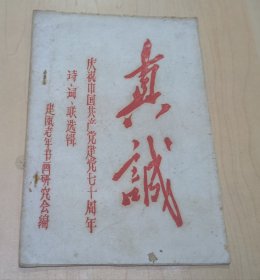 真誠
庆祝中国共产党建党七十周年
诗、词、联选辑
建瓯老年书画研究会编